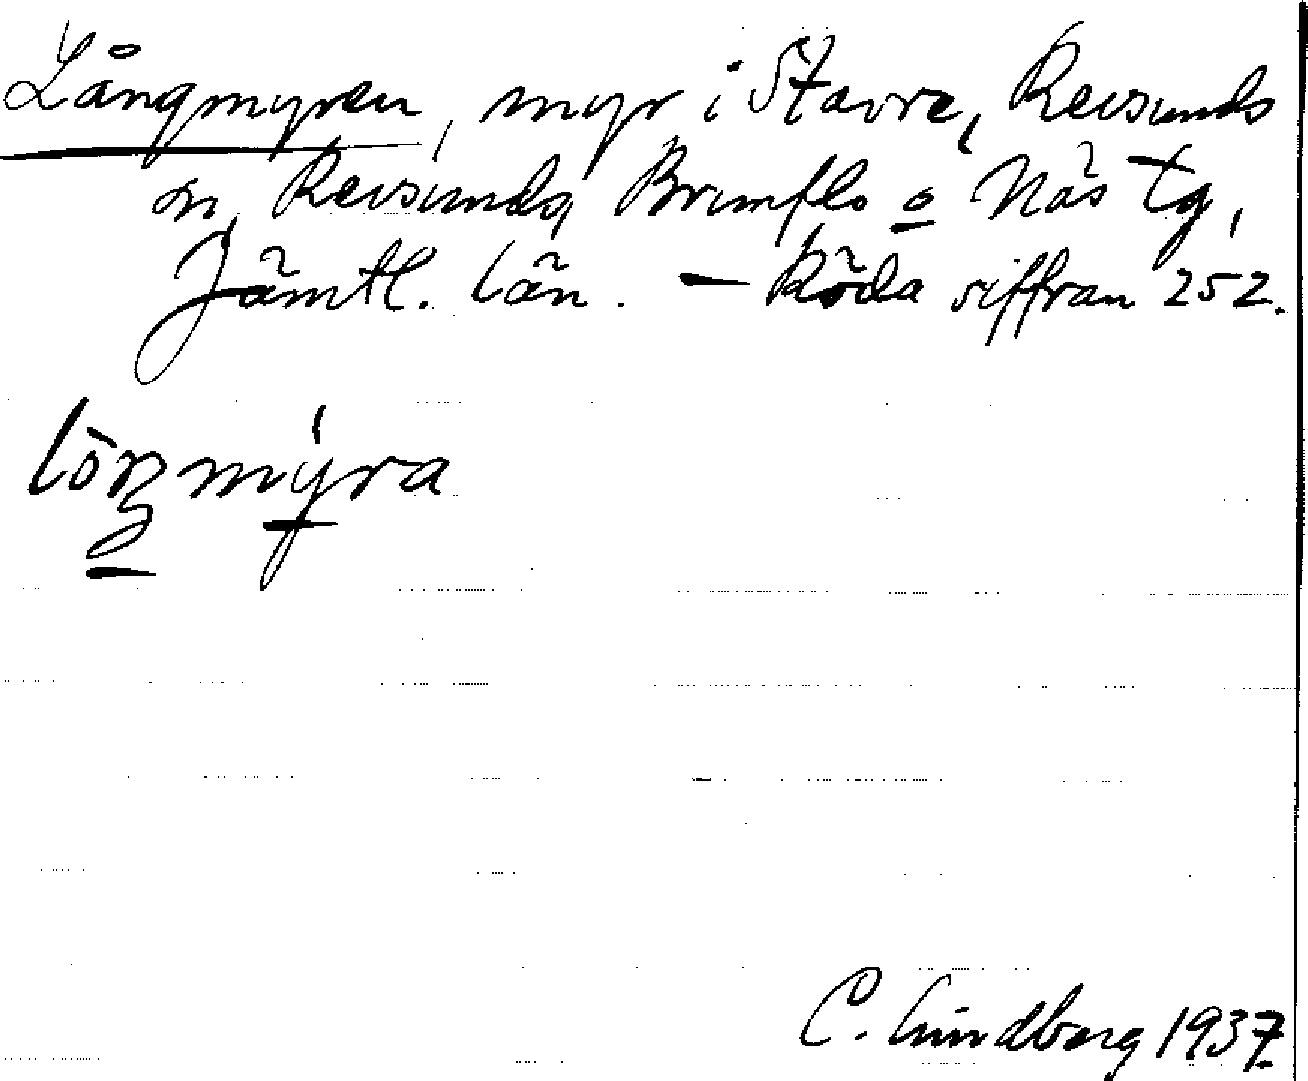 Långmyren, myr i Stavre, Revsunds
sn, Revsunds, Brunflo o Näs tg,
Jämtl. län. — Röda siffran 252.
C. Lindberg 1937